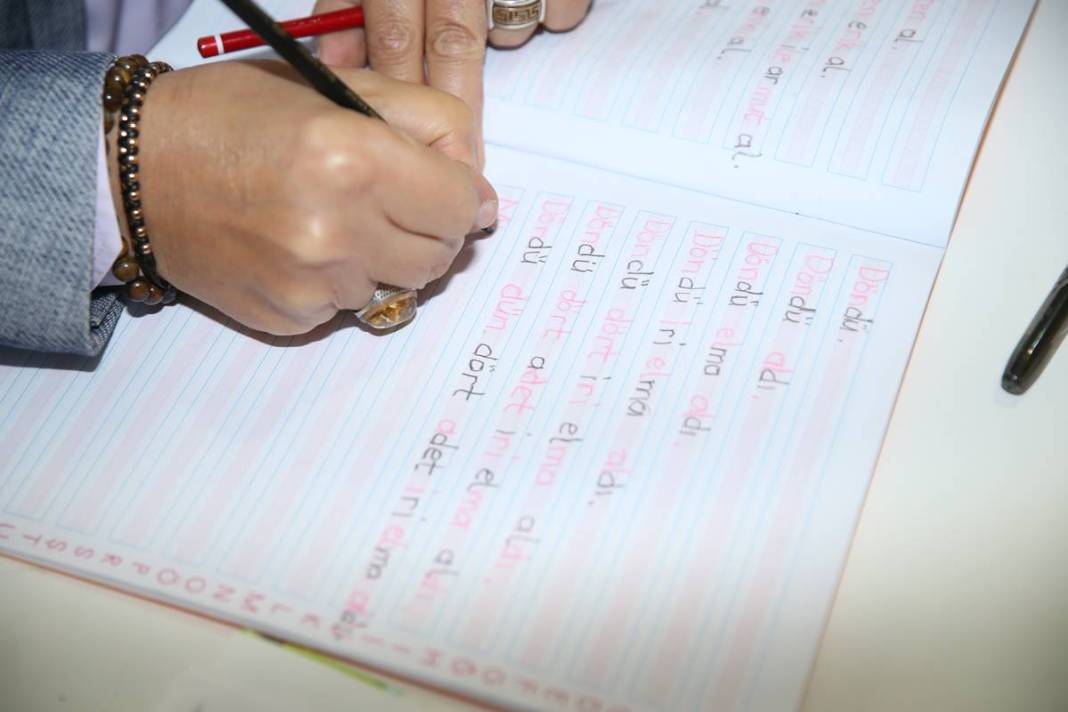 al.
erik al.
armut al.
al.
Döndü.
Döndü aldı.
Döndü elma aldı.
Döndü iri elma aldı.
Döndü dört iri elma aldı.
Döndü dört adet iri elma aldı.
Döndü dün dört adet iri elma aldı.
D E F G Ğ H I İ J K L M N O Ö P R S Ş T U